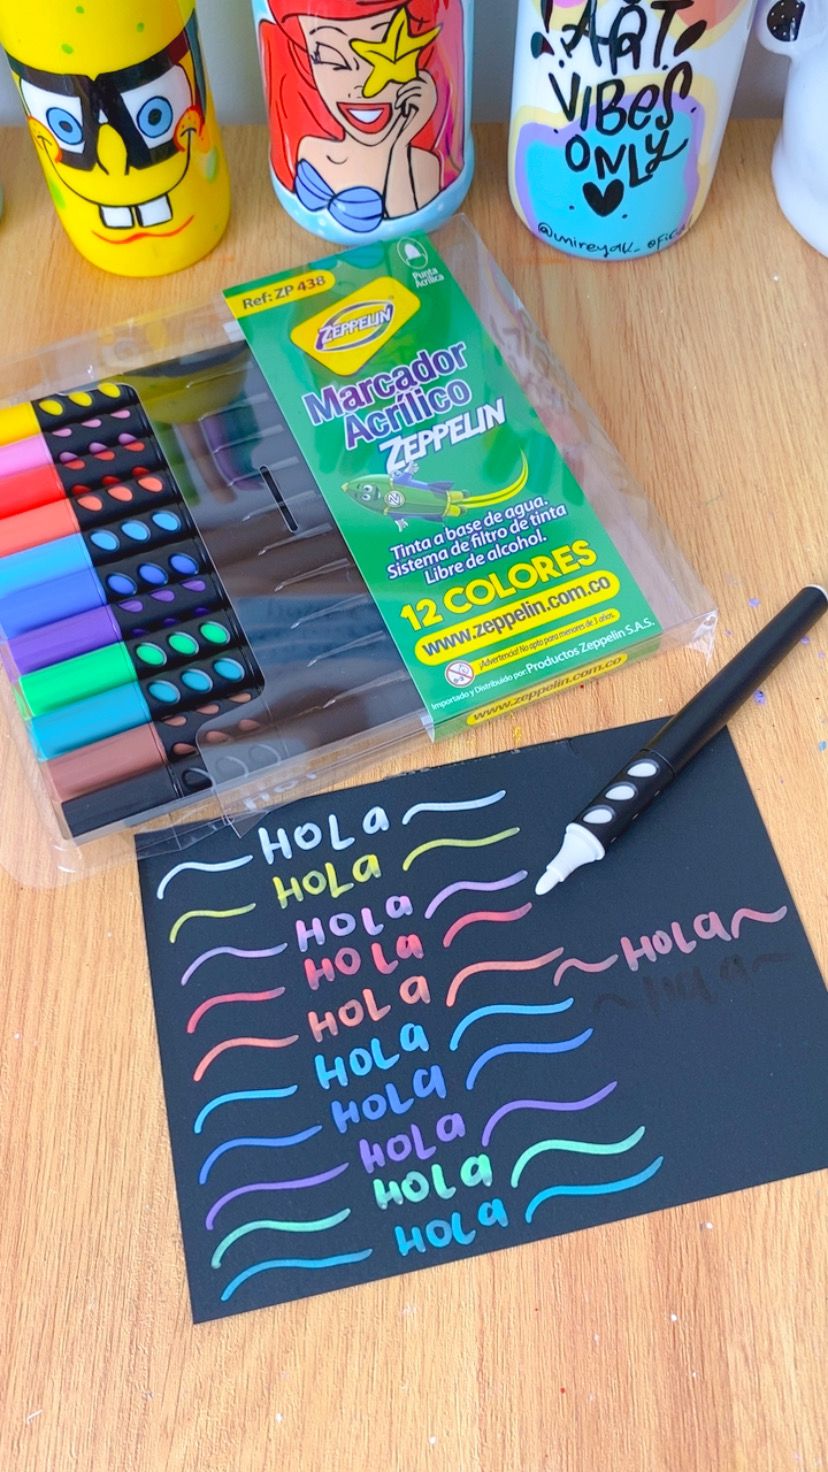 ART
VIBES
ONLY
Ref: ZP 438
Punta
Acrílica
ZEPPELIN
Marcador
Acrílico
ZEPPELIN
Tinta a base de agua.
Sistema de filtro de tinta
Libre de alcohol.
12 COLORES
www.zeppelin.com.co
¡Advertencia! No apto para menores de 3 años.
Importado y Distribuido por: Productos Zeppelin S.A.S.
www.zeppelin.com.co
HOLA
HOLA
HOLA
HOLA
HOLA
HOLA
HOLA
HOLA
HOLA
HOLA
HOLA
HOLA